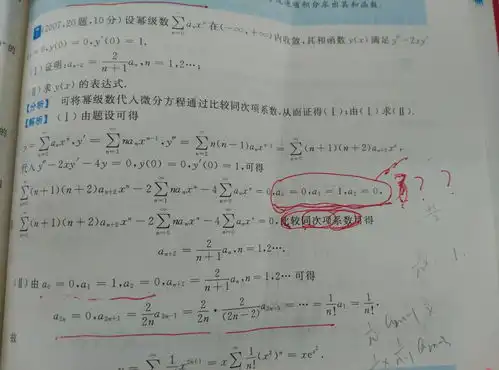 (2007,20题,10分)设幂级数∑aₙxⁿ在(-∞,+∞)内收敛,其和函数y(x)满足y″-2xy′
=0,y(0)=0,y′(0)=1.
(Ⅰ)证明:aₙ₊₂=2/(n+1) aₙ,n=1,2…;
(Ⅱ)求y(x)的表达式.
【分析】 可将幂级数代入微分方程通过比较同次项系数,从而证得(Ⅰ);由(Ⅰ)求(Ⅱ).
【解析】 (Ⅰ)由题设可得
y=∑aₙxⁿ,y′=∑naₙxⁿ⁻¹,y″=∑n(n-1)aₙxⁿ⁻²=∑(n+1)(n+2)aₙ₊₂xⁿ,
代入y″-2xy′-4y=0,y(0)=0,y′(0)=1,可得
∑(n+1)(n+2)aₙ₊₂xⁿ-2∑naₙxⁿ-4∑aₙxⁿ=0,a₀=0,a₁=1,a₂=0, ? ?
∑(n+1)(n+2)aₙ₊₂xⁿ-2∑naₙxⁿ-4∑aₙxⁿ=0,比较同次项系数可得
aₙ₊₂=2/(n+1) aₙ,n=1,2….
(Ⅱ)由a₀=0,a₁=1,a₂=0,aₙ₊₂=2/(n+1) aₙ,n=1,2…可得
a₂ₙ=0,a₂ₙ₊₁=2/2n a₂ₙ₋₁=2/2n·2/(2n-2) a₂ₙ₋₃=…=1/n! a₁=1/n!.
故
y=∑1/n! x²ⁿ⁺¹=x∑1/n! (x²)ⁿ=xeˣ².